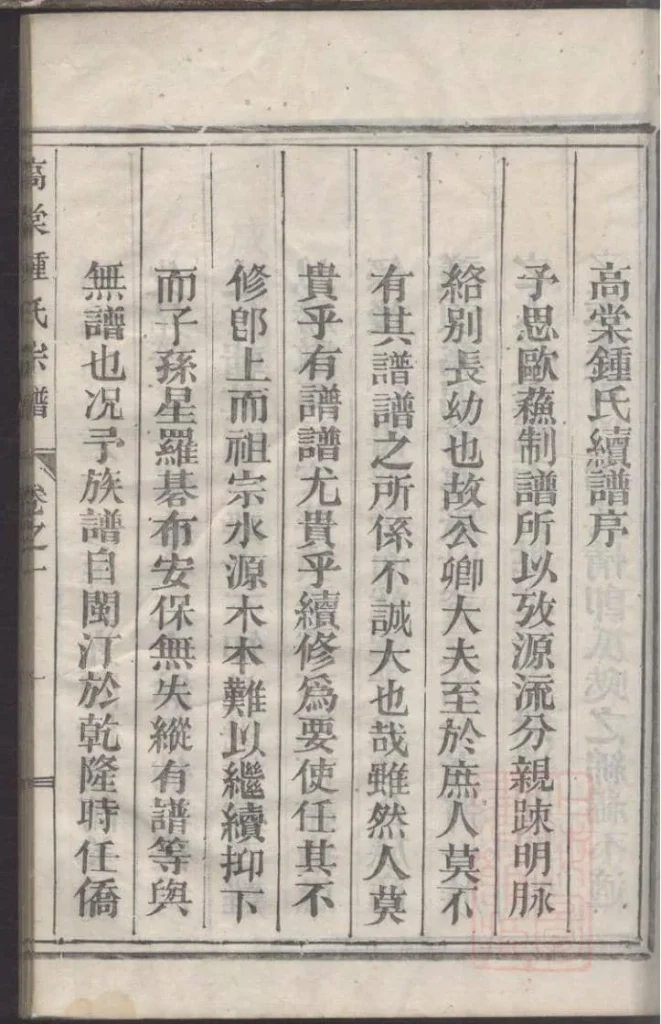 高棠鍾氏續譜序
予思歐蘇制譜所以攷源流分親踈明脉
絡別長幼也故公卿大夫至於庶人莫不
有其譜譜之所係不誠大也哉雖然人莫
貴乎有譜譜尤貴乎續修爲要使任其不
修卽上而祖宗水源木本難以繼續抑下
而子孫星羅碁布安保無失縱有譜等與
無譜也况予族譜自閩汀於乾隆時任僑
高棠鍾氏宗譜 卷之一 一